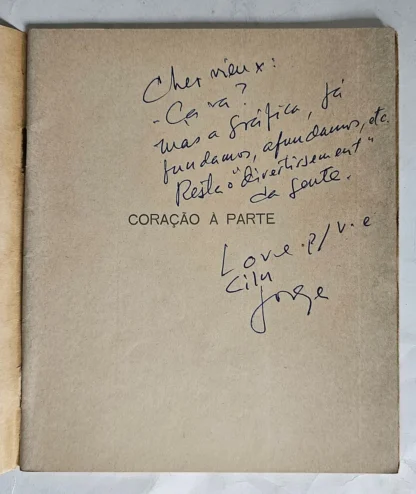 Cher vieux:
- Ça va?
mas a gráfica, já
fundamos, afundamos, etc.
Resta o "divertissement"
da gente.
CORAÇÃO À PARTE
Love p/ v. e
Jorge